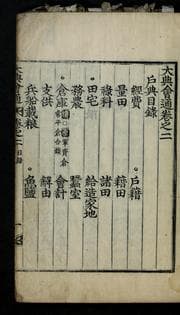 大典會通卷之二
戶典目錄
經費 戶籍
量田 籍田
祿科 諸田
田宅 給造家地
務農 蠶室
倉庫 軍資倉 常平倉合錄 會計
支供 解由
兵船載粮 魚鹽
大典會通 卷之二 目錄 一